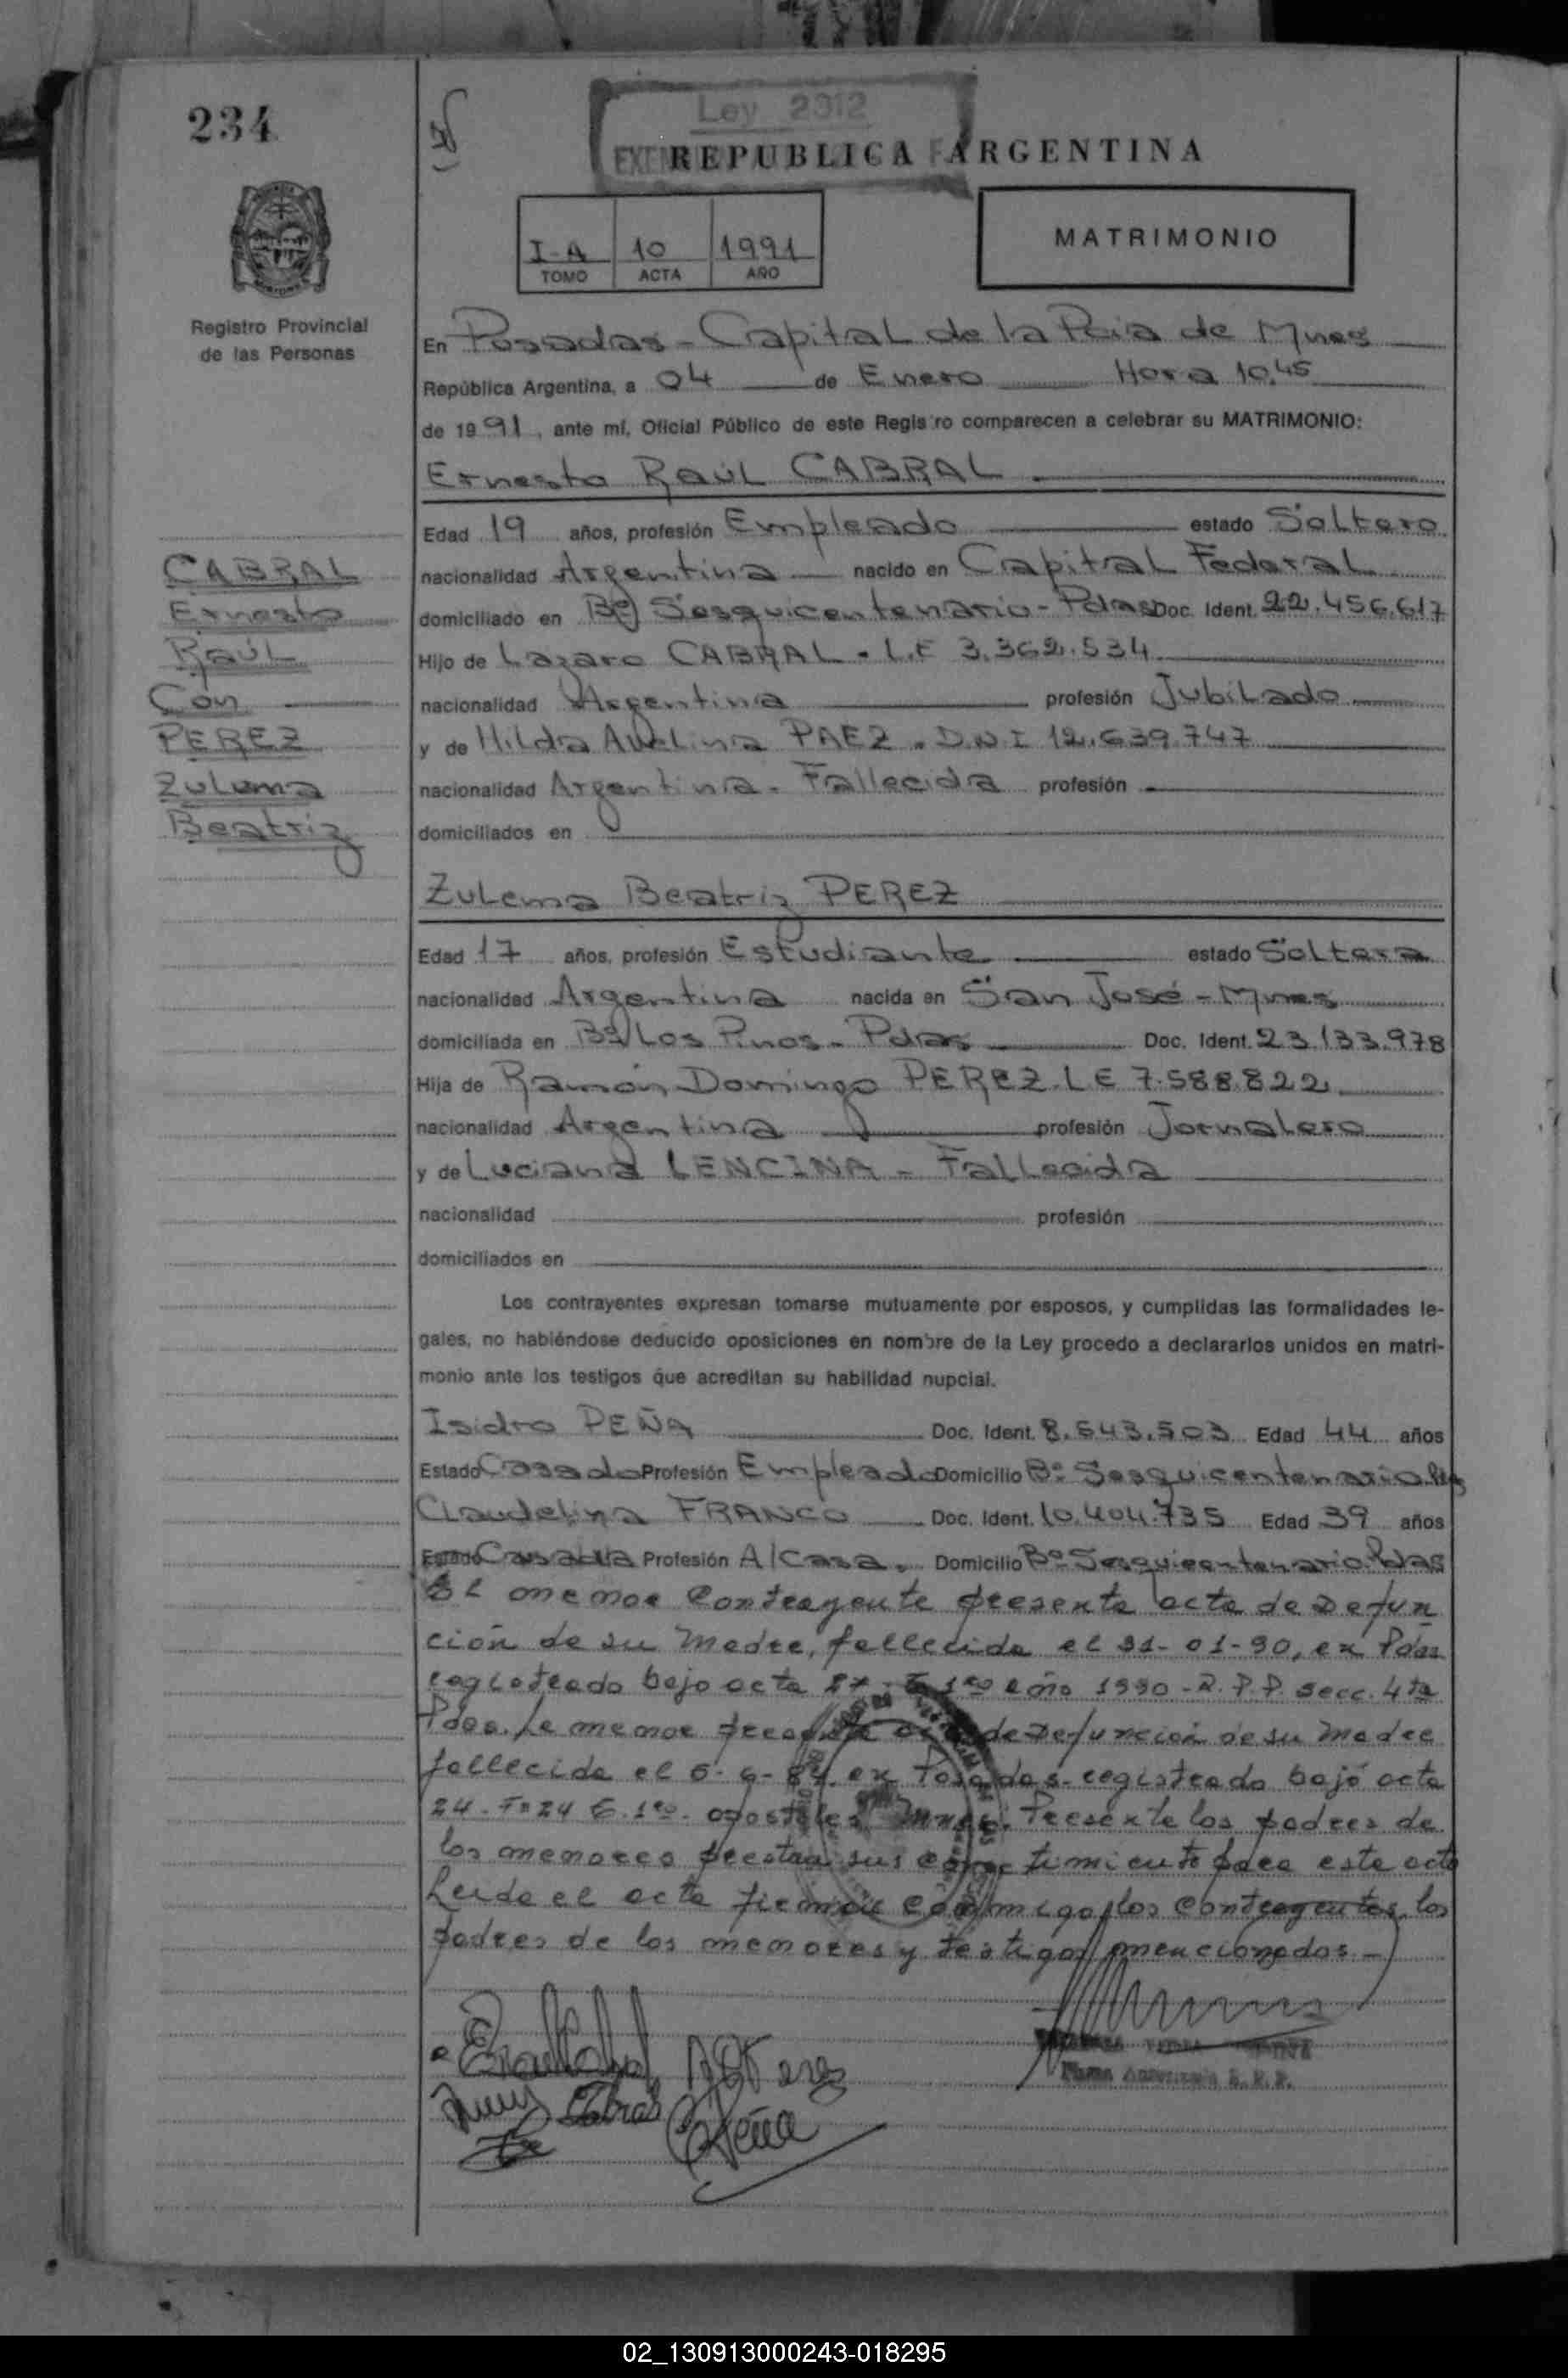 234
Ley 2012
REPUBLICA ARGENTINA
I-A 10 1991
TOMO ACTA AÑO
MATRIMONIO
Registro Provincial
de las Personas
En Posadas - Capital de la Pcia de Mnes
República Argentina, a 04 de Enero Hora 10,45
de 1991, ante mí, Oficial Público de este Registro comparecen a celebrar su MATRIMONIO:
Ernesto Raúl CABRAL
Edad 19 años, profesión Empleado estado Soltero
nacionalidad Argentina nacido en Capital Federal
domiciliado en Bº Sesquicentenario - Pdas Doc. Ident. 22.456.617
Hijo de Lazaro CABRAL - L.E 3.362.534
nacionalidad Argentina profesión Jubilado
y de Hilda Avelina PAEZ - D.N.I 12.639.747
nacionalidad Argentina - Fallecida profesión
domiciliados en
CABRAL
Ernesto
Raúl
Con
PEREZ
Zulema
Beatriz
Zulema Beatriz PEREZ
Edad 17 años, profesión Estudiante estado Soltera
nacionalidad Argentina nacida en San José - Mnes
domiciliada en Bº Los Pinos - Pdas Doc. Ident. 23.133.978
Hija de Ramón Domingo PEREZ L E 7.588.822
nacionalidad Argentina profesión Jornalero
y de Luciana LENCINA - Fallecida
nacionalidad profesión
domiciliados en
Los contrayentes expresan tomarse mutuamente por esposos, y cumplidas las formalidades le-
gales, no habiéndose deducido oposiciones en nombre de la Ley procedo a declararlos unidos en matri-
monio ante los testigos que acreditan su habilidad nupcial.
Isidro PEÑA Doc. Ident. 8.543.503 Edad 44 años
Estado Casado Profesión Empleado Domicilio Bº Sesquicentenario Pdas
Claudelina FRANCO Doc. Ident. 10.404.735 Edad 39 años
Estado Casada Profesión A/Casa. Domicilio Bº Sesquicentenario Pdas
El menor contrayente presenta acta de Defun
ción de su madre, fallecida el 31-01-90, en Pdas
registrado bajo acta 1ro año 1990 - R.P.P. secc. 4ta
Pdas. La menor presenta acta de Defunción de su madre
fallecida el 6-6-84 en Posadas - registrado bajo acta
24 - Tº 24 1ro. apostoles Mnes. Presente los padres de
los menores prestan sus consentimiento para este acto
Leida el acta firman conmigo los contrayentes, los
padres de los menores y testigos mencionados -
Cabral
Peña
Firma Autorizada R.P.P.
02_130913000243-018295